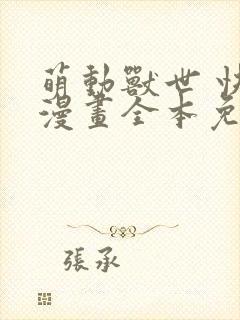 萌動獸世 快
漫畫全本免
張承